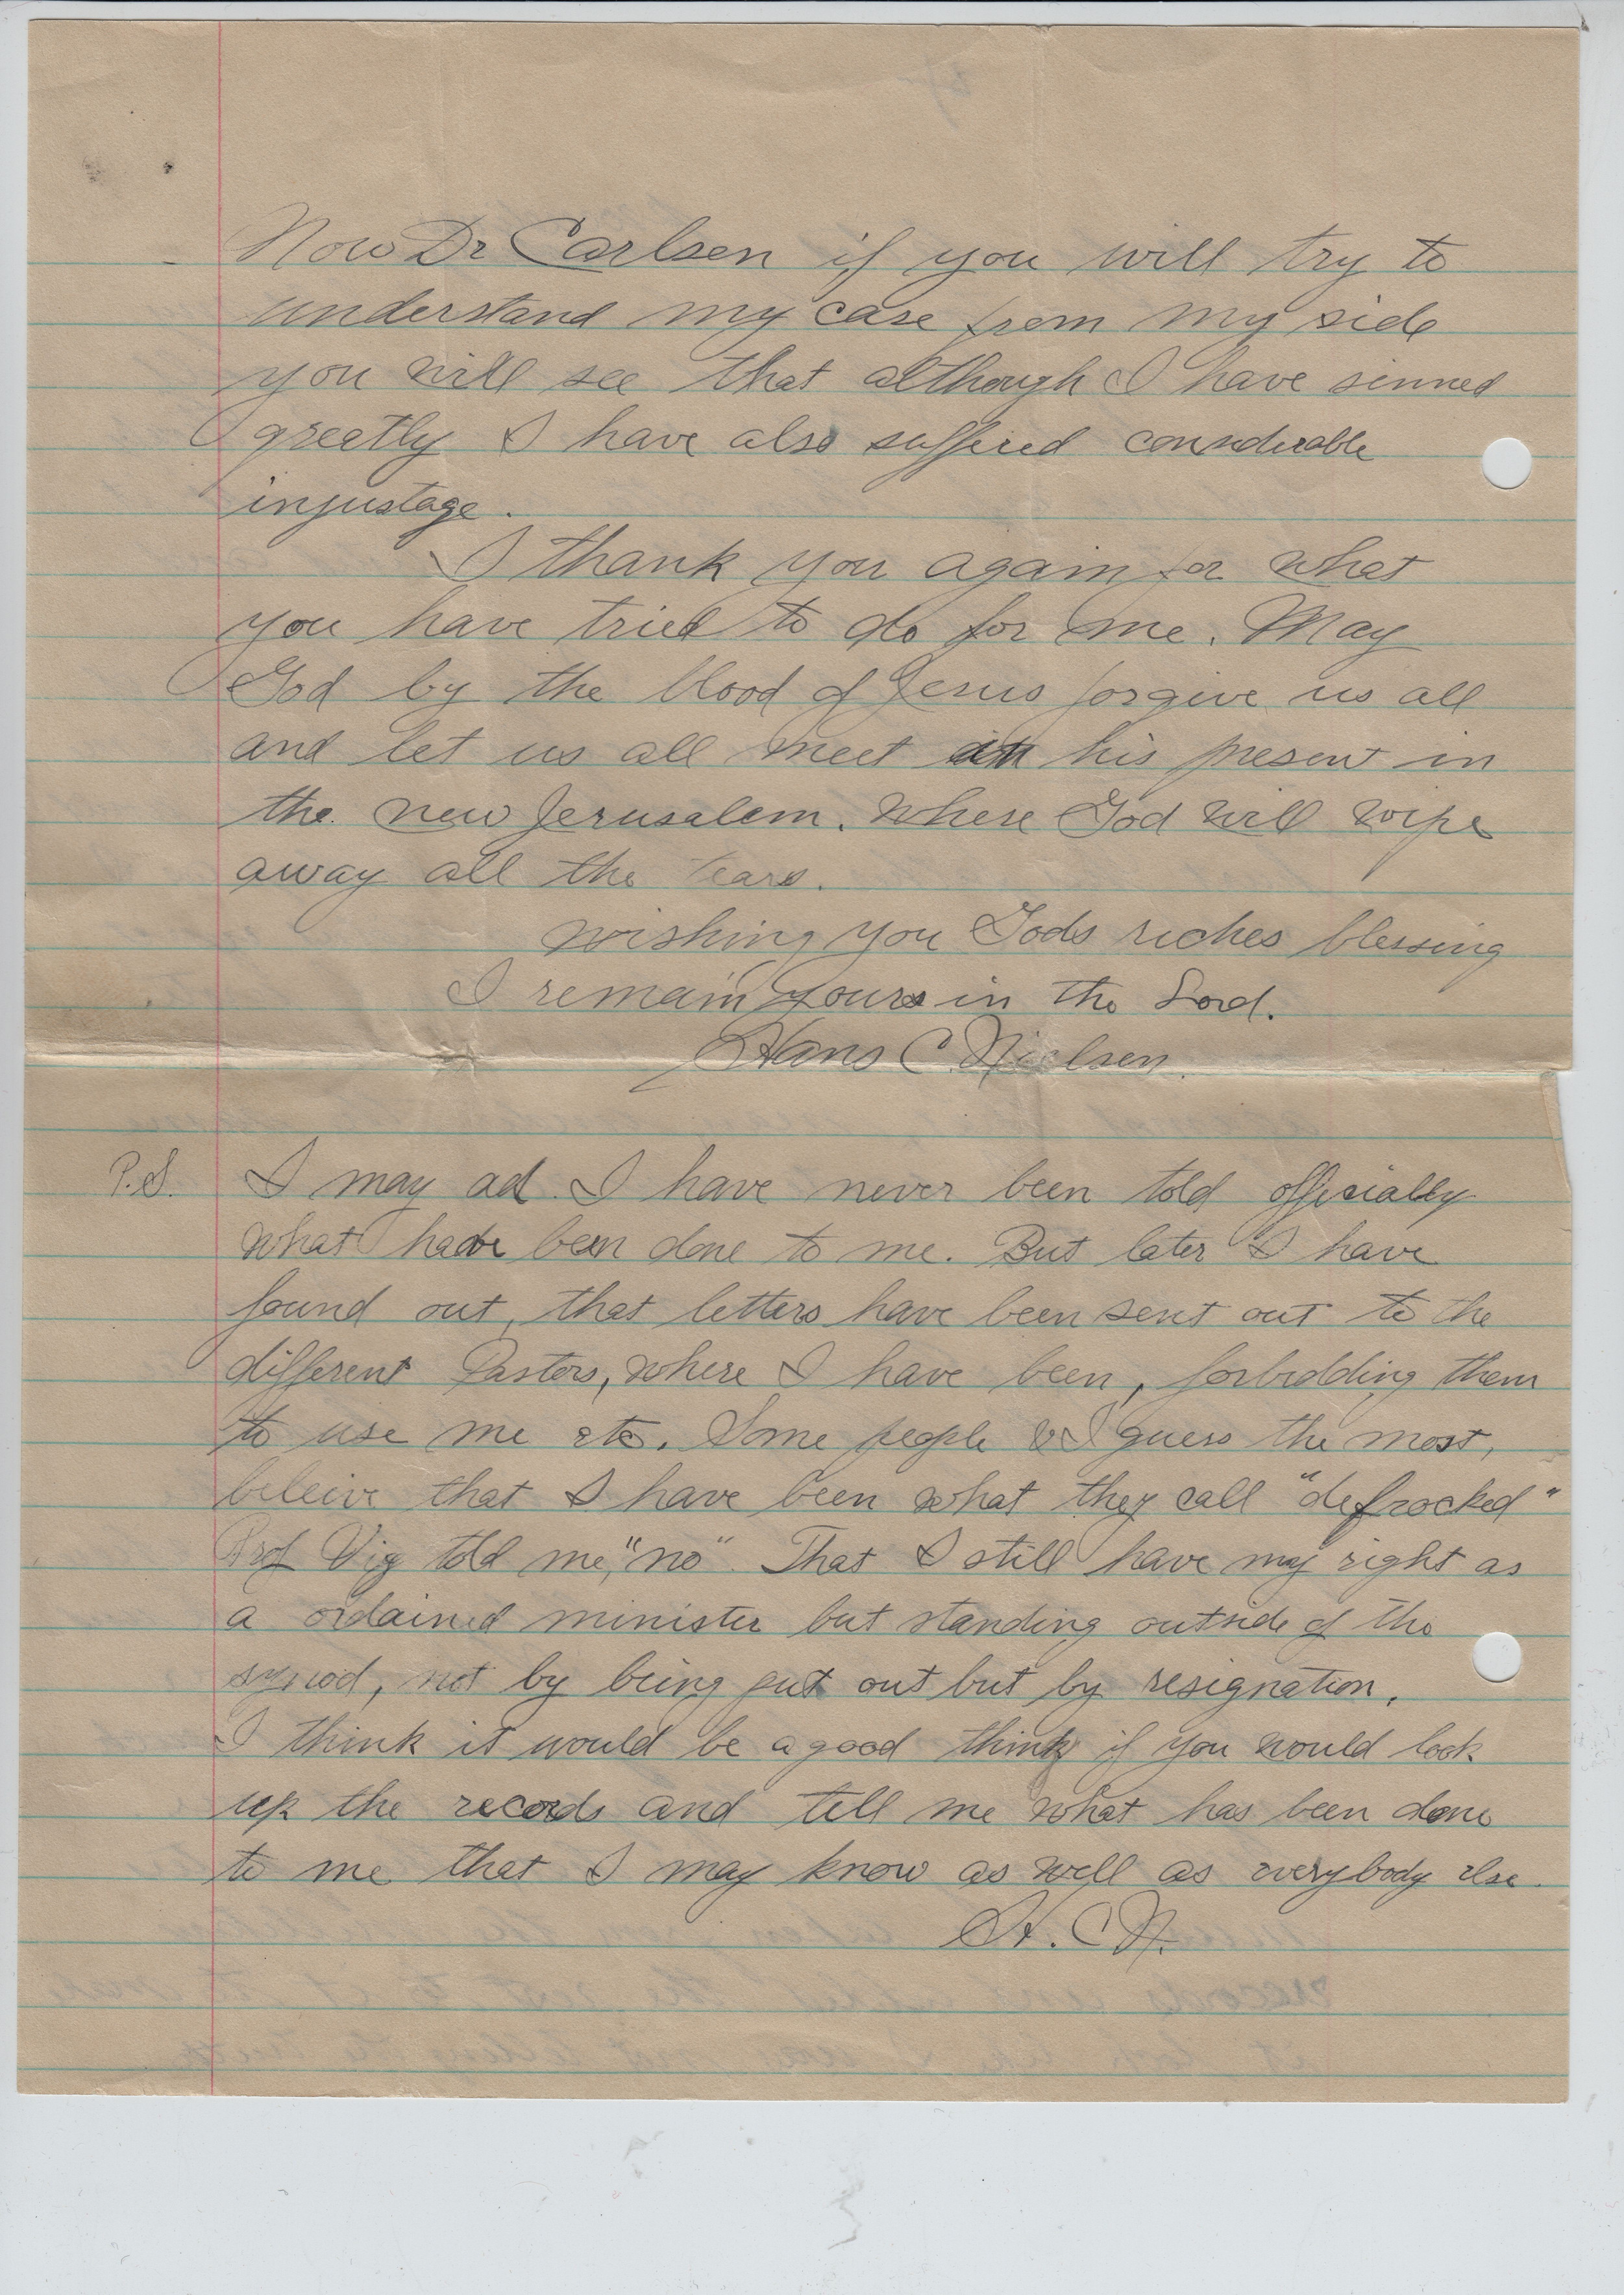 Now Dr Carlsen if you will try to
understand my case from my side
you will see that although I have sinned
greetly I have also suffered considerable
injustage.
I thank you again for what
you have tried to do for me. May
God by the blood of Jesus forgive us all
and let us all meet in his present in
the new Jerusalem. Where God will wipe
away all the tears.
Wishing you Gods riches blessing
I remain yours in the Lord.
Hans C. Nielsen.
P.S. I may ad I have never been told officially
what have been done to me. But later I have
found out, that letters have been sent out to the
different Pastors, where I have been, forbidding them
to use me etc. Some people & I guess the most,
beleive that I have been what they call "defrocked"
Prof Vig told me, "no". That I still have my right as
a ordained minister but standing outside of the
synod, not by being put out but by resignation.
I think it would be a good think if you would look
up the records and tell me what has been done
to me that I may know as well as everybody else.
H. C. N.